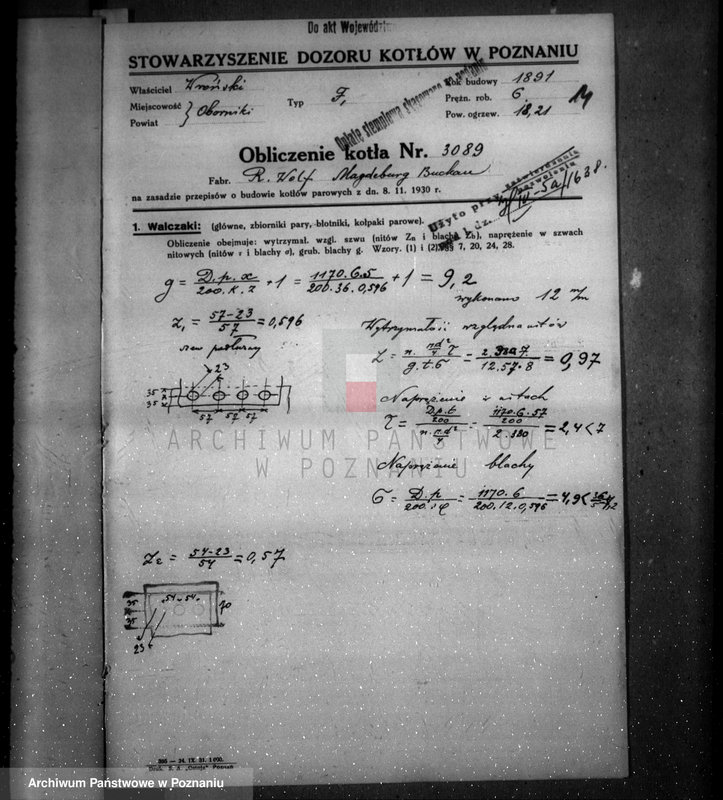 Do akt Wojewódz
STOWARZYSZENIE DOZORU KOTŁÓW W POZNANIU
Właściciel Wroński
Miejscowość } Oborniki
Powiat
Typ F,
Rok budowy 1891
Prężn. rob. 6
Pow. ogrzew. 18,21
14
Opłatę stemplową skasowano na podaniu
Obliczenie kotła Nr. 3089
Fabr. R. Wolf Magdeburg Buckau
na zasadzie przepisów o budowie kotłów parowych z dn. 8. 11. 1930 r.
Użyto przy zatwierdzeniu
pozwolenia
IV-5a/1638.
1. Walczaki: (główne, zbiorniki pary, błotniki, kołpaki parowe).
Obliczenie obejmuje: wytrzymał. wzgl. szwu (nitów Zn i blachy Zb), naprężenie w szwach
nitowych (nitów τ i blachy σ), grub. blachy g. Wzory. (1) i (2) §§ 7, 20, 24, 28.
g = D.p.x / 200.K.z + 1 = 1170.6.5 / 200.36.0,596 + 1 = 9,2
wykonano 12 m/m
z1 = 57-23 / 57 = 0,596
szew podłużny
23
35
35
57 57 57
Wytrzymałość względna nitów
Z = n. πd²/4 τ / g.t.σ = 2.380.7 / 12.57.8 = 0,97
Naprężenie w nitach
τ = D.p.t/200 / n.πd²/4 = 1170.6.57/200 / 2.380 = 2,4 < 7
Naprężenie blachy
σ = D.p / 200.sφ = 1170.6 / 200.12.0,596 = 4,9 <
z2 = 54-23 / 54 = 0,57
54 54
35
35
70
23
ARCHIWUM PAŃSTWOWE
W POZNANIU
366 — 24. IX. 31. 1 000.
Druk. S. A. „Ostoja" Poznań
Archiwum Państwowe w Poznaniu